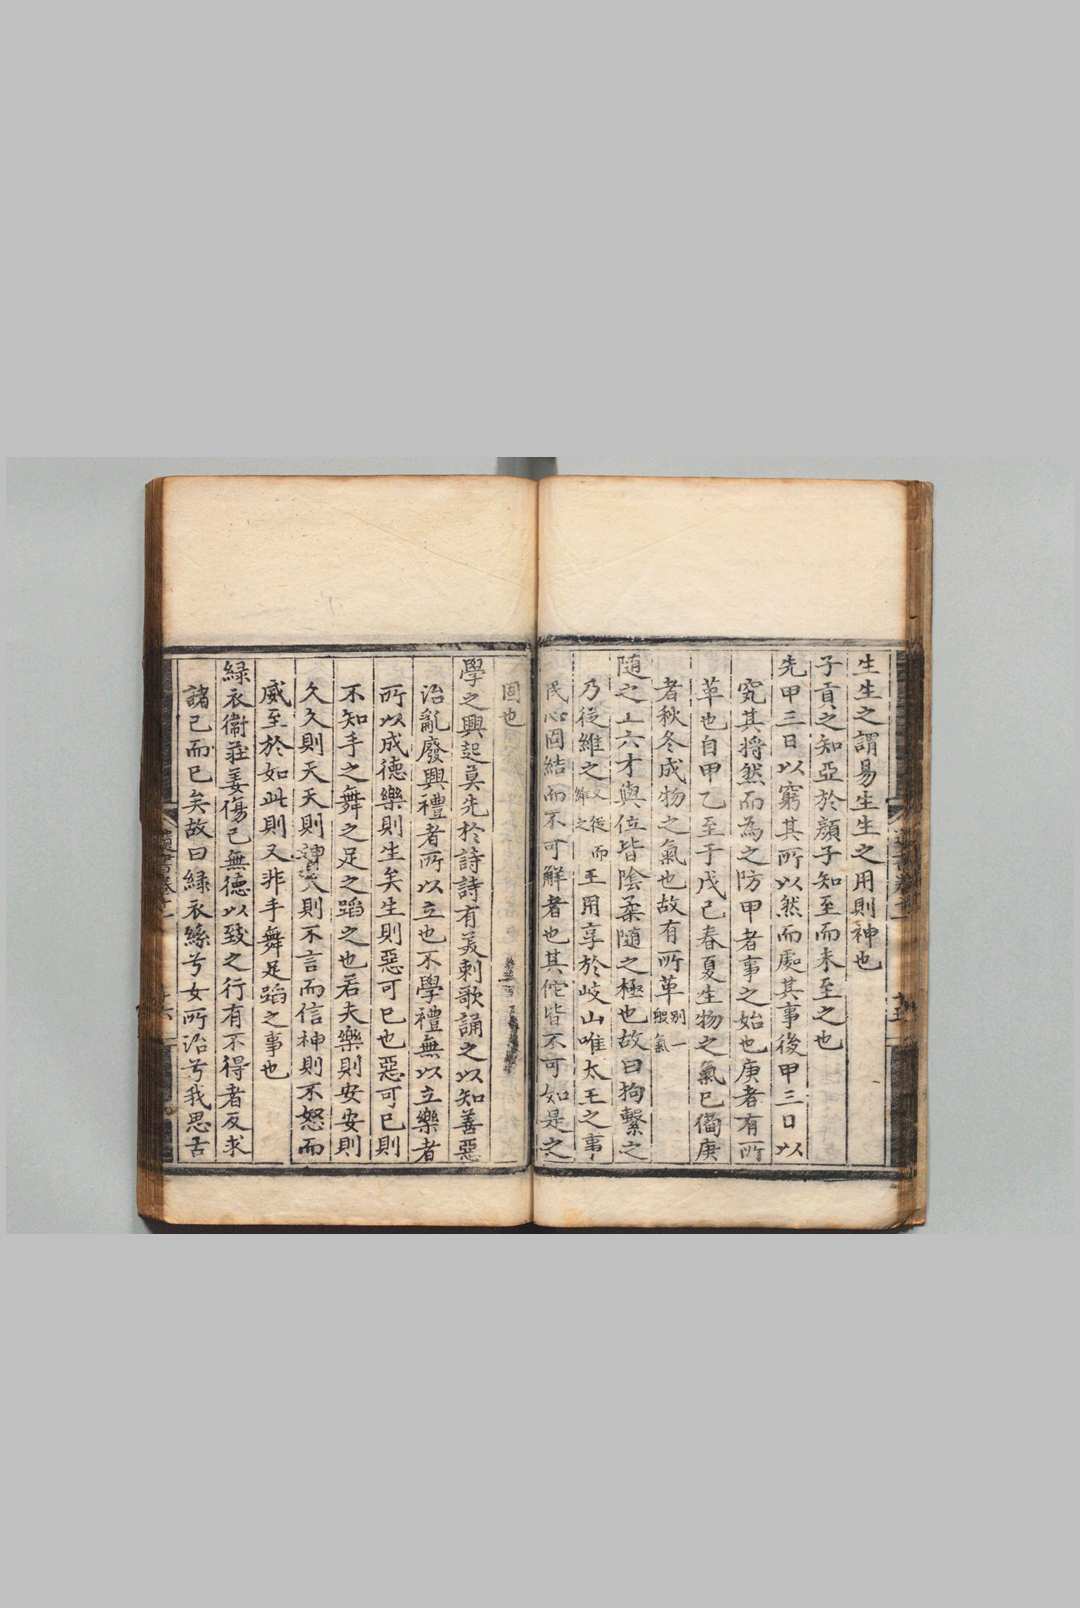 生生之謂易生生之用則神也
子貢之知亞於顏子知至而未至之也
先甲三日以窮其所以然而處其事後甲三日以
究其將然而為之防甲者事之始也庚者有所
革也自甲乙至于戊己春夏生物之氣已備庚
者秋冬成物之氣也故有所革別一般氣
隨之上六才與位皆陰柔隨之極也故曰拘繫之
乃從維之又從而維之王用享於岐山唯太王之事
民心固結而不可解者也其佗皆不可如是之
固也
學之興起莫先於詩詩有美刺歌誦之以知善惡
治亂廢興禮者所以立也不學禮無以立樂者
所以成德樂則生矣生則惡可已也惡可已則
不知手之舞之足之蹈之也若夫樂則安安則
久久則天天則神天則不言而信神則不怒而
威至於如此則又非手舞足蹈之事也
綠衣衛莊姜傷己無德以致之行有不得者反求
諸己而已矣故曰綠衣絲兮女所治兮我思古